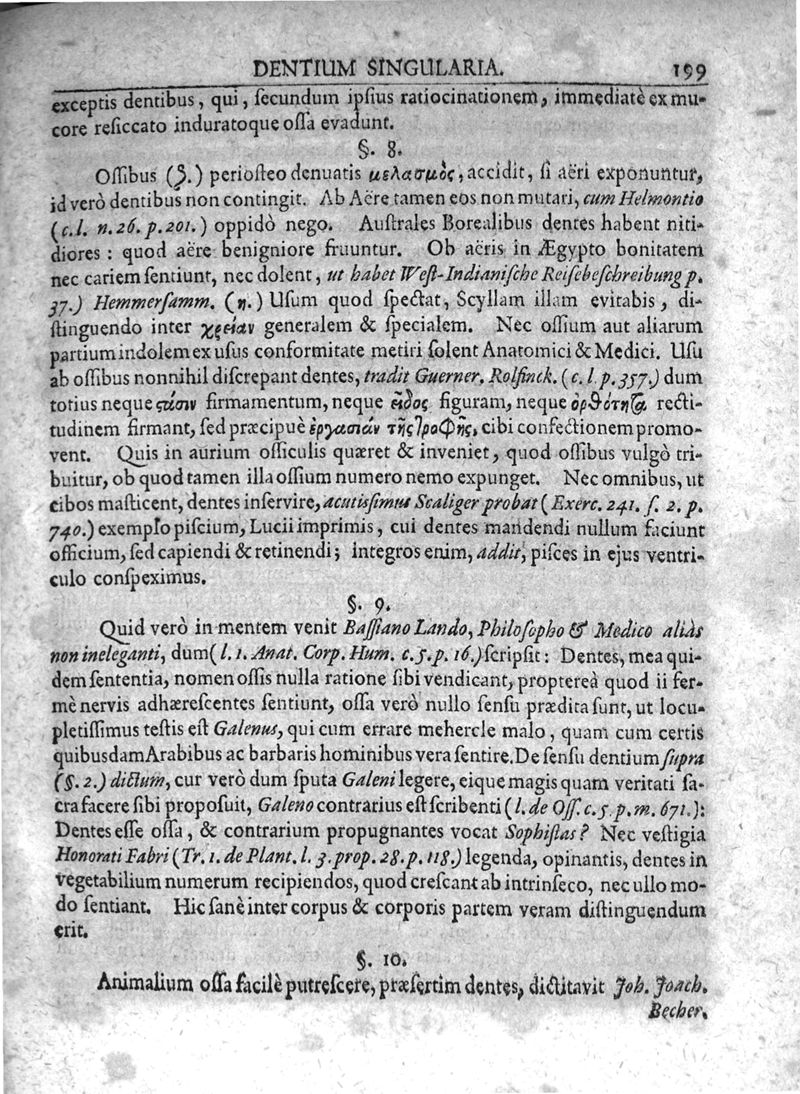 DENTIUM SINGULARIA. 199
exceptis dentibus, qui, ſecundum ipſius ratiocinationem, immediatè ex mu-
core reſiccato induratoque oſſa evadunt.
§. 8.
Oſſibus (ζ.) perioſteo denuatis μελασμὸς, accidit, ſi aëri exponuntur,
id verò dentibus non contingit. Ab Aëre tamen eos non mutari, cum Helmontio
(c.l. n.26. p.201.) oppidò nego. Auſtrales Borealibus dentes habent niti-
diores : quod aëre benigniore fruuntur. Ob aëris in Ægypto bonitatem
nec cariem ſentiunt, nec dolent, ut habet Weſt-Indianiſche Reiſebeſchreibung p.
37.) Hemmerſamm. (η.) Uſum quod ſpectat, Scyllam illam evitabis, di-
ſtinguendo inter χρείαν generalem & ſpecialem. Nec oſſium aut aliarum
partium indolem ex uſus conformitate metiri ſolent Anatomici & Medici. Uſu
ab oſſibus nonnihil diſcrepant dentes, tradit Guerner. Rolfinck. (c. l p.357.) dum
totius neque ϛάσιν firmamentum, neque εἶδος figuram, neque ὀρθότητα recti-
tudinem firmant, ſed præcipuè ἐργασιάν τῆς τροφῆς, cibi confectionem promo-
vent. Quis in aurium oſſiculis quæret & inveniet, quod oſſibus vulgò tri-
buitur, ob quod tamen illa oſſium numero nemo expunget. Nec omnibus, ut
cibos maſticent, dentes inſervire, acutiſsimus Scaliger probat (Exerc. 241. ſ. 2. p.
740.) exemplo piſcium, Lucii imprimis, cui dentes mandendi nullum faciunt
officium, ſed capiendi & retinendi; integros enim, addit, piſces in ejus ventri-
culo conſpeximus.
§. 9.
Quid verò in mentem venit Baſſiano Lando, Philoſopho & Medico aliàs
non ineleganti, dum (l. 1. Anat. Corp. Hum. c. 5. p. 16.) ſcripſit : Dentes, mea qui-
dem ſententia, nomen oſſis nulla ratione ſibi vendicant, propterea quod ii fer-
mè nervis adhæreſcentes ſentiunt, oſſa verò nullo ſenſu prædita ſunt, ut locu-
pletiſſimus teſtis eſt Galenus, qui cum errare mehercle malo, quam cum certis
quibusdam Arabibus ac barbaris hominibus vera ſentire. De ſenſu dentium ſupra
(§. 2.) dictum, cur verò dum ſputa Galeni legere, eique magis quam veritati ſa-
cra facere ſibi propoſuit, Galeno contrarius eſt ſcribenti (l. de Oſſ. c. 5. p. m. 671.):
Dentes eſſe oſſa, & contrarium propugnantes vocat Sophiſtas? Nec veſtigia
Honorati Fabri (Tr. 1. de Plant. l. 3. prop. 28. p. 118.) legenda, opinantis, dentes in
vegetabilium numerum recipiendos, quod creſcant ab intrinſeco, nec ullo mo-
do ſentiant. Hic ſanè inter corpus & corporis partem veram diſtinguendum
erit.
§. 10.
Animalium oſſa facilè putreſcere, præſertim dentes, dictitavit Joh. Joach.
Becher.